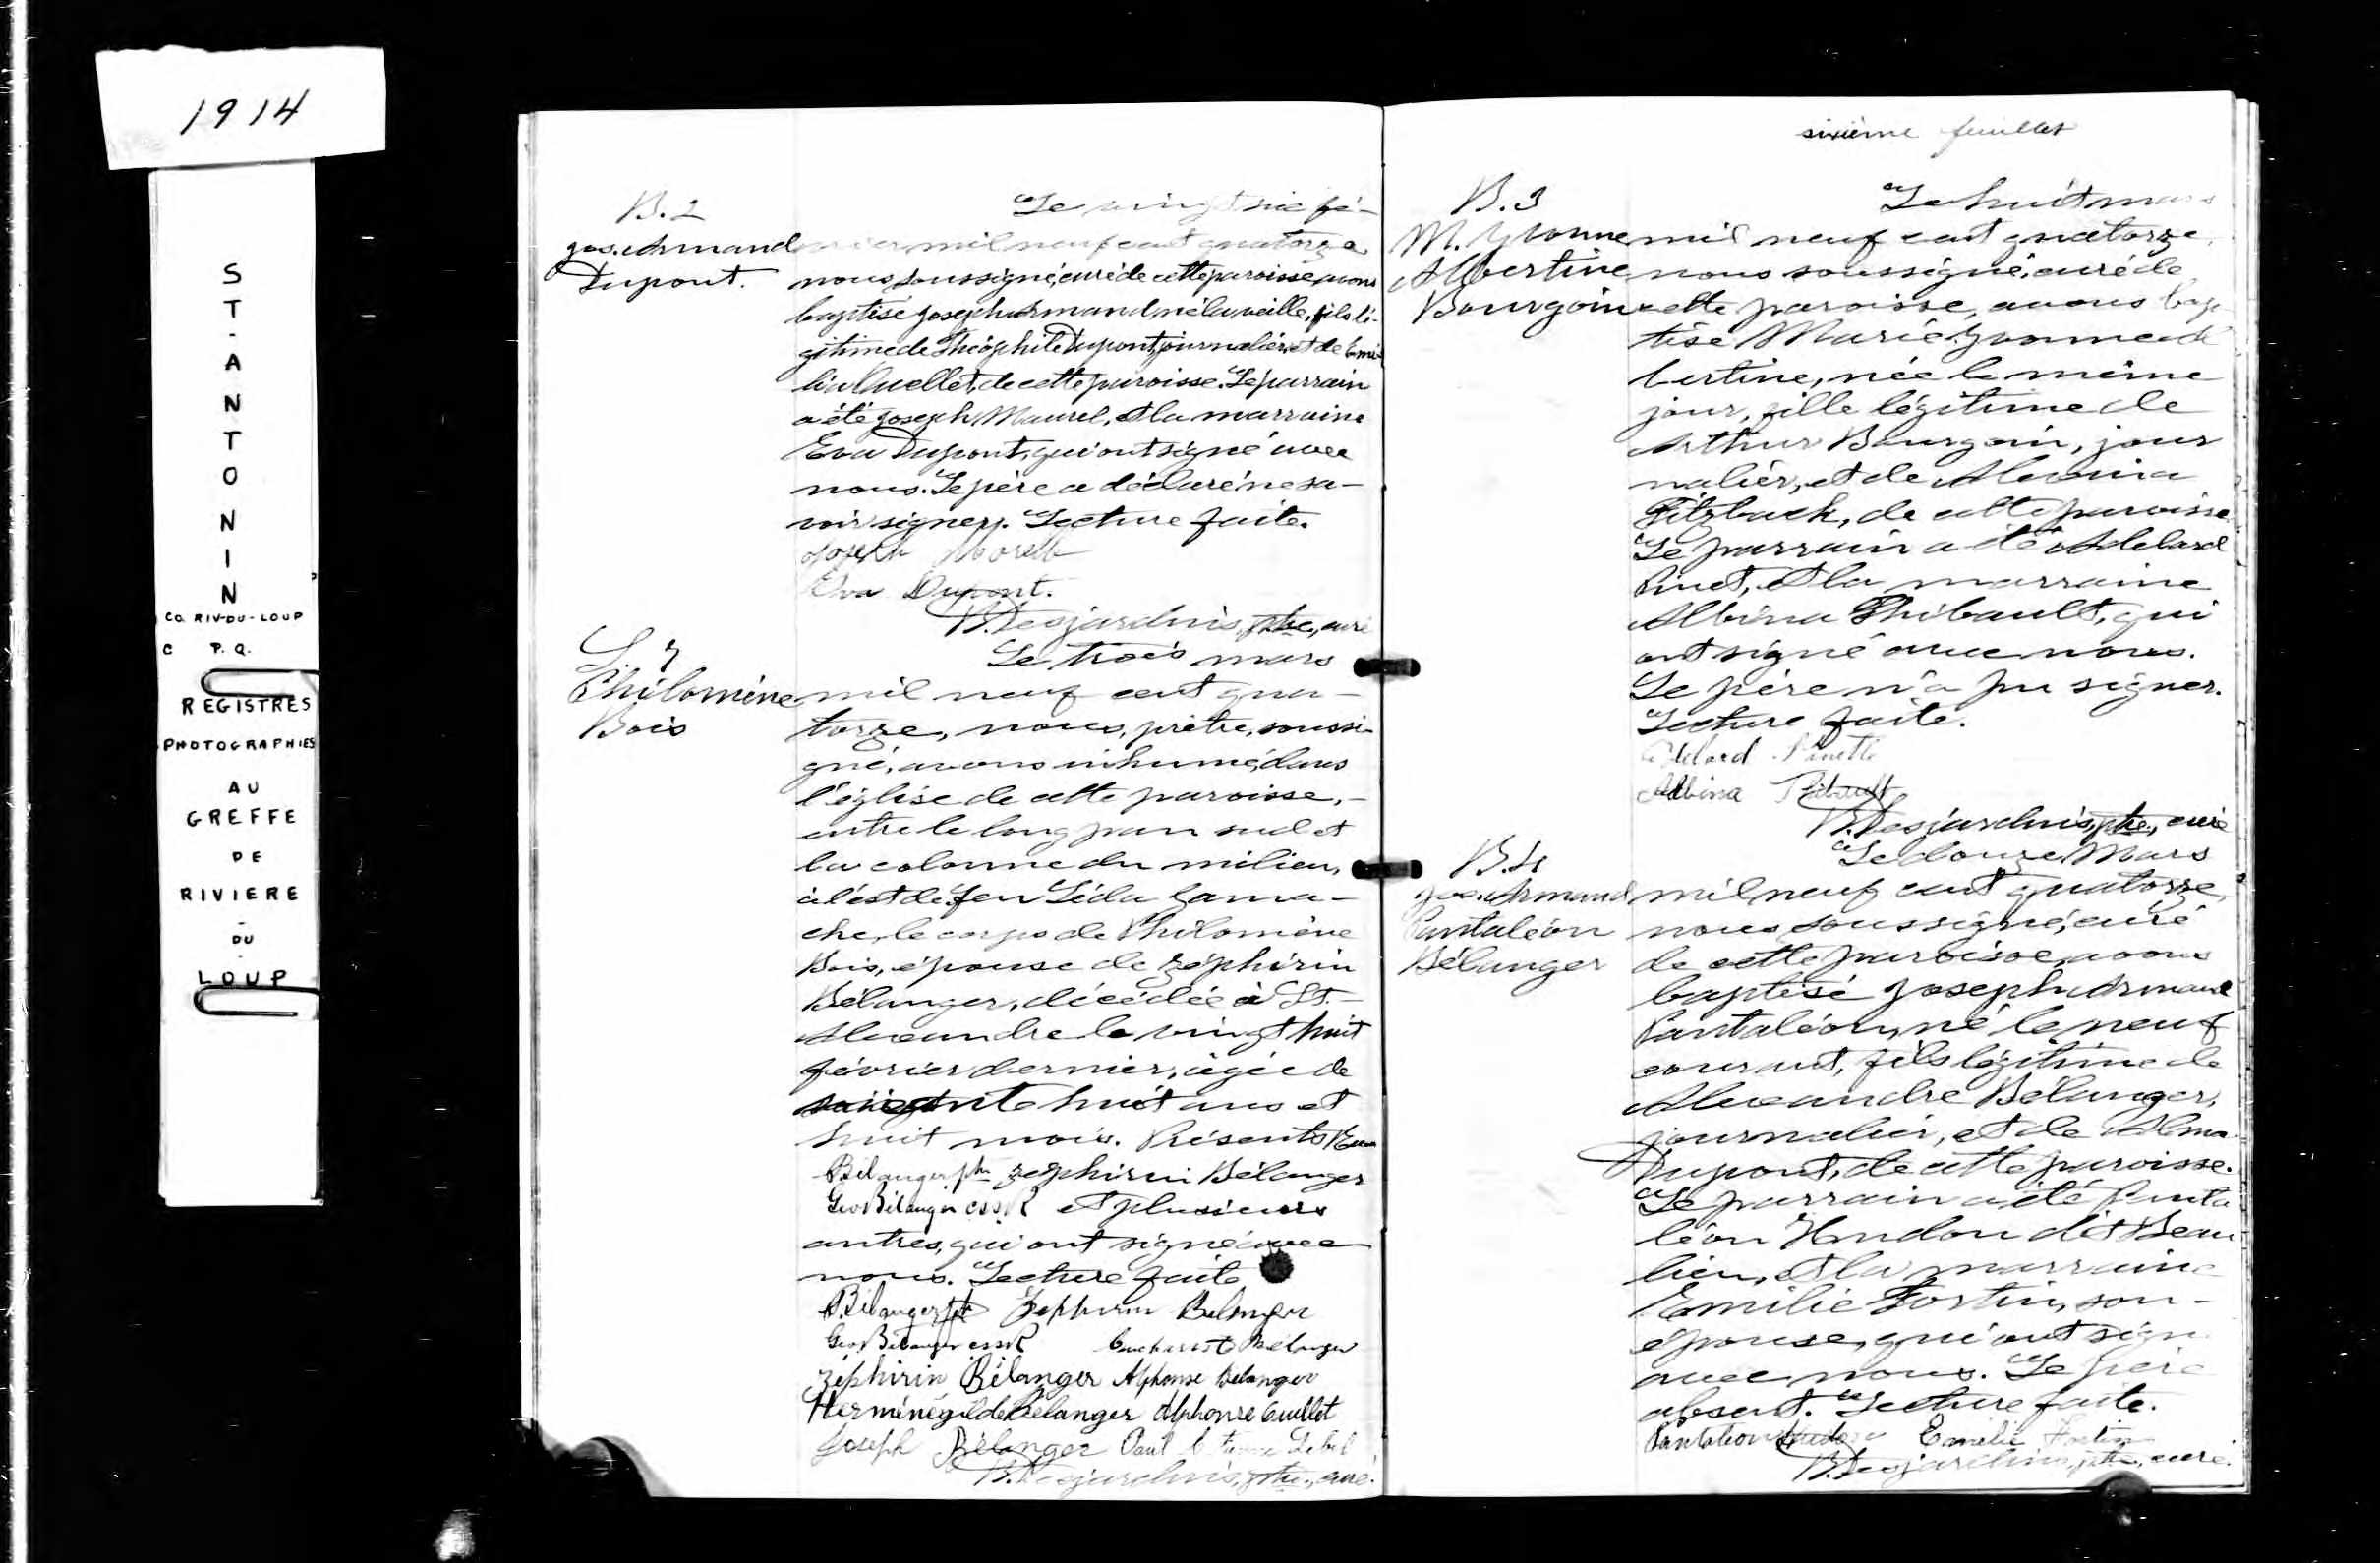 1914
ST-ANTONIN
CO. RIV-DU-LOUP
C P.Q.
REGISTRES
PHOTOGRAPHIES
AU
GREFFE
DE
RIVIERE
-
DU
LOUP
B. 2
Jos. Armand
Dupont.
Le vingt six fé-
vrier mil neuf cent quatorze
nous, soussigné, curé de cette paroisse, avons
baptisé Joseph Armand, né la veille, fils lé-
gitime de Théophile Dupont, journalier, et de Emé-
lia Ouellet, de cette paroisse. Le parrain
a été Joseph Maurel, et la marraine
Eva Dupont, qui ont signé avec
nous. Le père a déclaré ne sa-
voir signer. Lecture faite.
Joseph Morell
Eva Dupont.
B. Desjardins, ptre, curé
S. 7
Philomène
Bois
Le trois mars
mil neuf cent qua-
torze, nous, prêtre, soussi-
gné, avons inhumé, dans
l'église de cette paroisse, -
entre le long pan sud et
la colonne du milieu,
à l'est de feu Léda Gama-
che, le corps de Philomène
Bois, épouse de Zéphirin
Bélanger, décédée à St.-
Alexandre le vingt huit
février dernier, âgée de
soixante huit ans et
huit mois. Présents
Bélanger ptre Zéphirin Bélanger
Geo Bélanger CSSR et plusieurs
autres, qui ont signé avec
nous. Lecture faite
Bélanger ptre Zephirin Belanger
Geo Bélanger CSSR Bélanger
Zéphirin Bélanger Alphonse Bélanger
Herménégilde Bélanger Alphonse Ouellet
Joseph Bélanger Paul Etienne Lebel
B. Desjardins, ptre, curé.
sixième feuillet
B. 3
M. Yvonne
Albertine
Bourgoin
Le huit mars
mil neuf cent quatorze,
nous soussigné, curé de
cette paroisse, avons bap
tisé Marie Yvonne Al
bertine, née le même
jour, fille légitime de
Arthur Bourgoin, jour
nalier, et de Alvina
Fitzback, de cette paroisse
Le parrain a été Adelard
Pinet, et la marraine
Albina Thibault, qui
ont signé avec nous.
Le père n'a pu signer.
Lecture faite.
Adelard Pinette
Albina Thibault
B. Desjardins, ptre, curé
B. 4
Jos. Armand
Pantaléon
Bélanger
Le douze Mars
mil neuf cent quatorze,
nous, soussigné, curé
de cette paroisse, avons
baptisé Joseph Armand
Pantaléon, né le neuf
courant, fils légitime de
Alexandre Bélanger,
journalier, et de Alma
Dupont, de cette paroisse.
Le parrain a été Panta
léon Hudon dit Beau
lieu, et la marraine
Emilie Fortin, son -
épouse, qui ont signé
avec nous. Le père
absent. Lecture faite.
Pantaléon Hudon Emélie Fortin
B. Desjardins, ptre, curé.